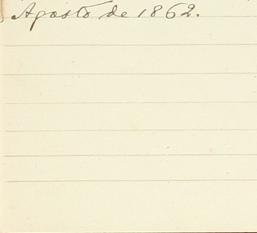 Agosto de 1862.